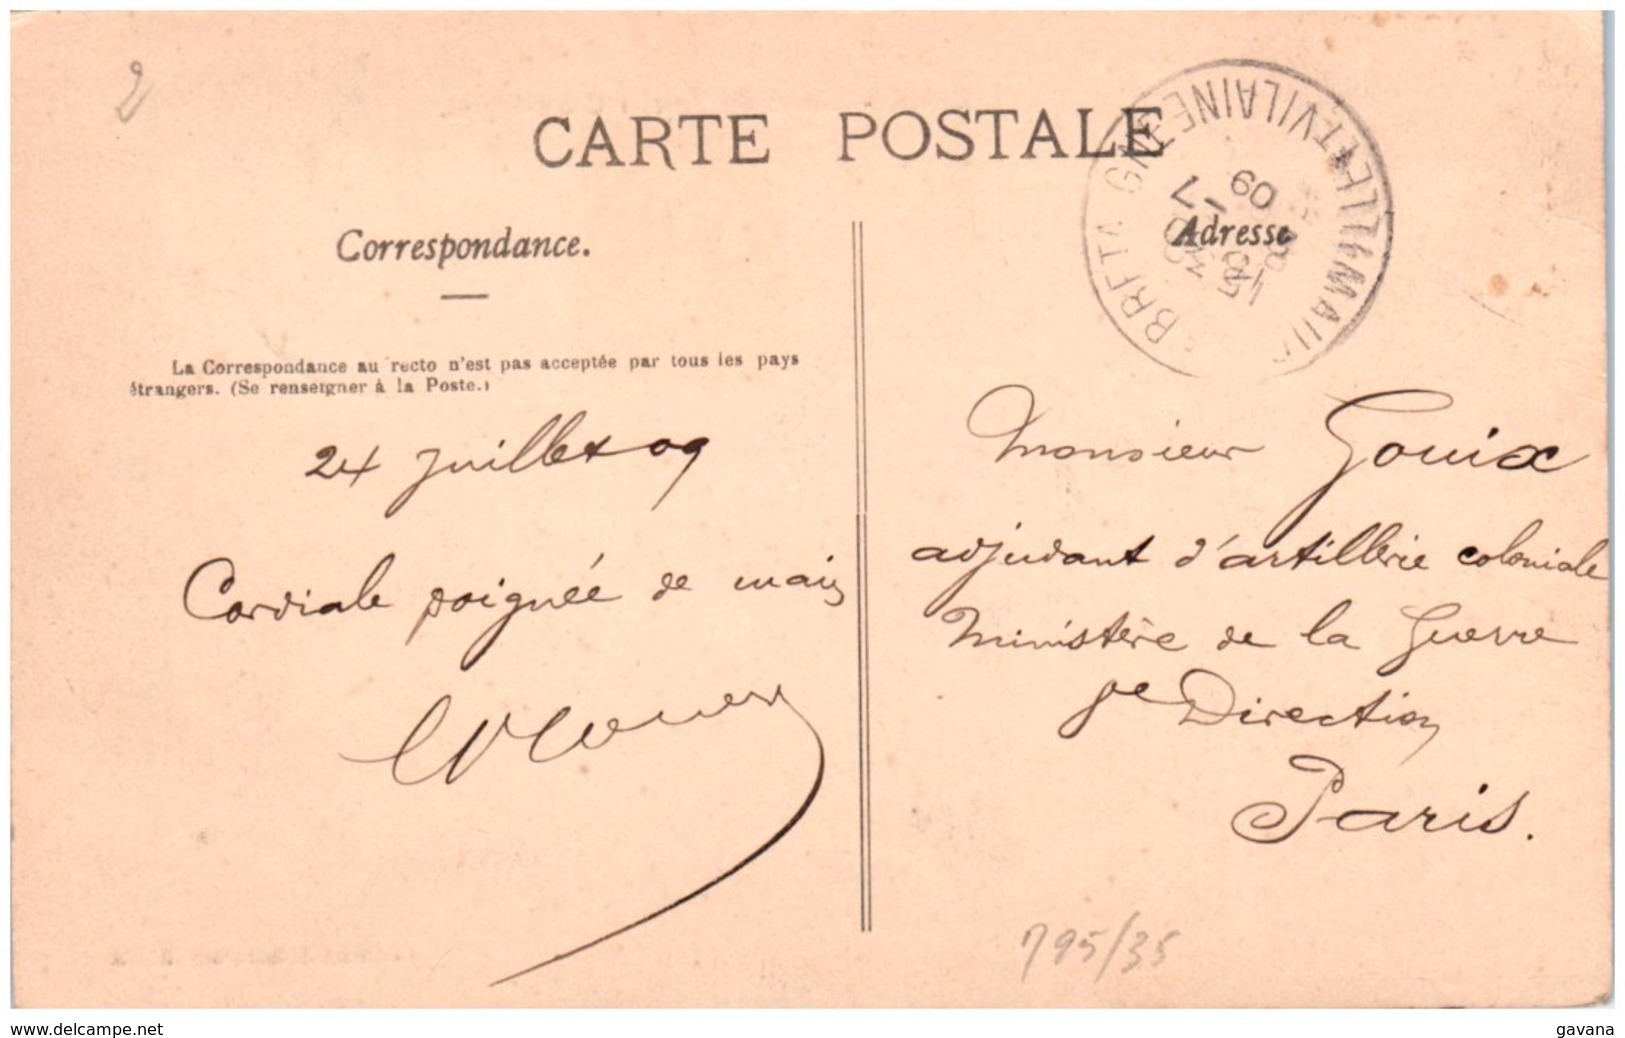 2
CARTE POSTALE
Correspondance.
Adresse
La Correspondance au recto n'est pas acceptée par tous les pays
étrangers. (Se renseigner à la Poste.)
24 Juillet 09
Cordiale poignée de main
Monsieur Gouix
adjudant d'artillerie coloniale
Ministère de la Guerre
Direction
Paris.
795/35
www.delcampe.net
gavana